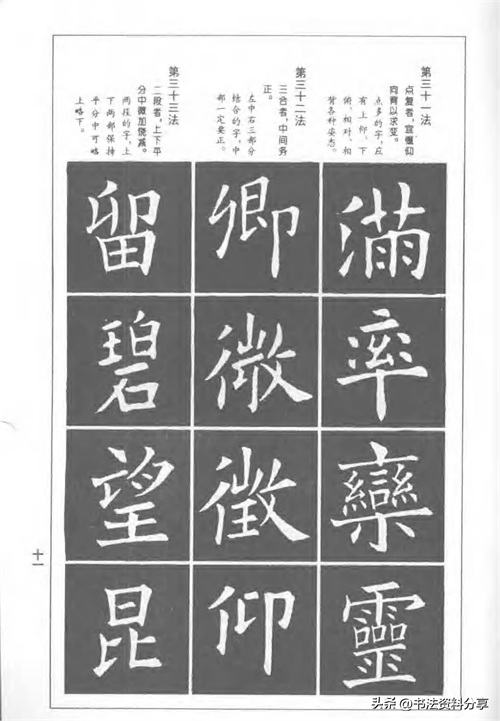 第三十一法
点复者,宜偃仰
向背以求变。
点多的字,应
有上仰、下
俯、相对、相
背各种姿态。
滿
率
欒
靈
第三十二法
三合者,中间务
正。
左中右三部分
结合的字,中
部一定要正。
卿
微
徵
仰
第三十三法
二段者,上下平
分中微加饶减。
两段的字,上
下两部保持
平分中可略
上略下。
留
碧
望
昆
十一
头条 @书法资料分享